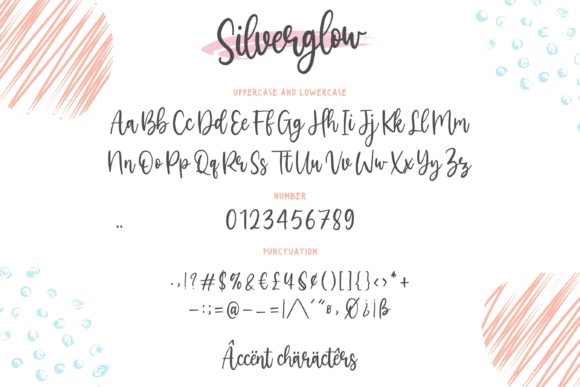 Silverglow
UPPERCASE AND LOWERCASE
Aa Bb Cc Dd Ee Ff Gg Hh Ii Jj Kk Ll Mm
Nn Oo Pp Qq Rr Ss Tt Uu Vv Ww Xx Yy Zz
NUMBER
0123456789
..
PUNCTUATION
.,|?#$%&€£¥§¢()[]{}<>*+
-:;=@-_=|/\´"ø,Ø¿¡ß
Âccënt chäräctêrs